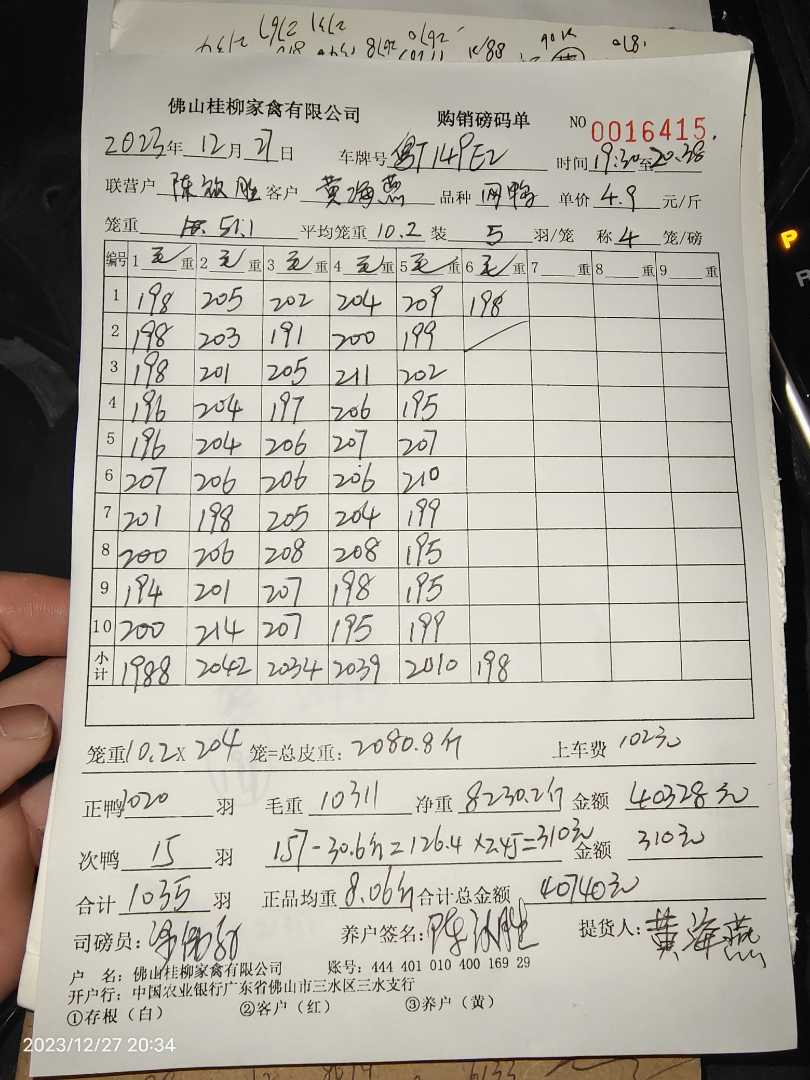 佛山桂柳家禽有限公司 购销磅码单 NO 0016415.
2023年 12月 27日 车牌号 粤T149E2 时间 19:30至20:38
联营户 陈钦胜 客户 黄海燕 品种 肉鸭 单价 4.9 元/斤
笼重 51.1 平均笼重 10.2 装 5 羽/笼 称 4 笼/磅
编号 1 毛重 2 毛重 3 毛重 4 毛重 5 毛重 6 毛重 7 重 8 重 9 重
1 198 205 202 204 209 198
2 198 203 191 200 199
3 198 201 205 211 202
4 196 204 197 206 195
5 196 204 206 207 207
6 207 206 206 206 210
7 201 198 205 204 199
8 200 206 208 208 195
9 194 201 207 198 195
10 200 214 207 195 199
小计 1988 2042 2034 2039 2010 198
笼重10.2X 204 笼=总皮重: 2080.8斤 上车费 102元
正鸭 1020 羽 毛重 10311 净重 8230.2斤 金额 40328元
次鸭 15 羽 157-30.6斤=126.4×2.45=310元 金额 310元
合计 1035 羽 正品均重 8.06斤 合计总金额 40740元
司磅员: 养户签名: 陈钦胜 提货人: 黄海燕
户 名: 佛山桂柳家禽有限公司 账号: 444 401 010 400 169 29
开户行: 中国农业银行广东省佛山市三水区三水支行
①存根（白） ②客户（红） ③养户（黄）
2023/12/27 20:34